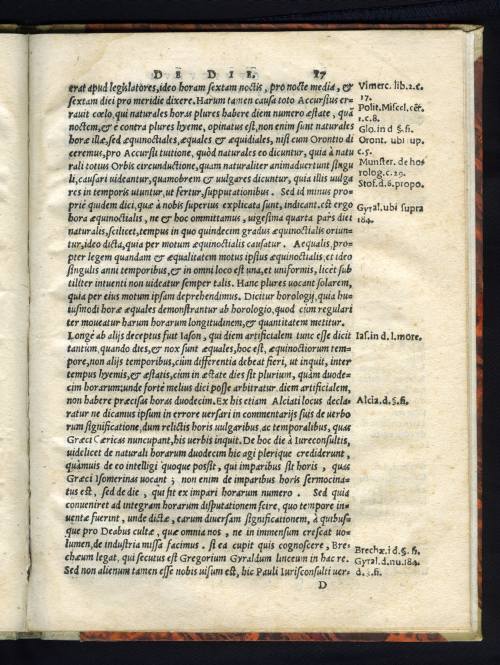 DE DIE. 17
erat apud legislatores, ideo horam sextam noctis, pro nocte media, &
sextam diei pro meridie dixere. Harum tamen causa toto Accursius er-
rauit cœlo, qui naturales horas plures habere diem numero æstate, quà
noctem, & è contra plures hyeme, opinatus est, non enim sunt naturales
horæ illæ, sed æquinoctiales, æquales & æquidiales, nisi cum Orontio di
ceremus, pro Accursii tuitione, quòd naturales eo dicuntur, quia à natu
rali totius Orbis circunductione, quam naturaliter animaduertunt singu
li, causari uideantur, quamobrem & uulgares dicuntur, quia illis uulga
res in temporis utuntur, ut fertur, supputationibus. Sed id minus pro-
priè quidem dici, quæ à nobis superius explicata sunt, indicant. est ergo
hora æquinoctialis, ne & hoc ommittamus, uigesima quarta pars diei
naturalis, scilicet, tempus in quo quindecim gradus æquinoctialis oriun-
tur, ideo dicta, quia per motum æquinoctialis causatur. Aequalis, pro-
pter legem quandam & æqualitatem motus ipsius æquinoctialis, et ideo
singulis anni temporibus, & in omni loco est una, et uniformis, licèt sub
tiliter intuenti non uideatur semper talis. Hanc plures uocant solarem,
quia per eius motum ipsam deprehendimus. Dicitur horologij, quia hu-
iusmodi horæ æquales demonstrantur ab horologio, quod cùm regulari
ter moueatur harum horarum longitudinem, & quantitatem metitur.
Longè ab alijs deceptus fuit Iason, qui diem artificialem tunc esse dicit
tantum, quando dies, & nox sunt æquales, hoc est, æquinoctiorum tem-
pore, non alijs temporibus, cùm differentia debeat fieri, ut inquit, inter
tempus hyemis, & æstatis, cùm in æstate dies sit plurium, quàm duode-
cim horarum: unde fortè melius dici posse arbitratur diem artificialem,
non habere præcisas horas duodecim. Ex his etiam Alciati locus decla-
ratur ne dicamus ipsum in errore uersari in commentarijs suis de uerbo
rum significatione, dum relictis horis uulgaribus, ac temporalibus, quas
Græci Cæricas nuncupant, his uerbis inquit. De hoc die à Iureconsultis,
uidelicet de naturali horarum duodecim hic agi plerique crediderunt,
quāuis de eo intelligi quoque possit, qui imparibus sit horis, quas
Græci Isomerinas uocant; non enim de imparibus horis sermocina-
tus est, sed de die, qui fit ex impari horarum numero. Sed quia
conueniret ad integram horarum disputationem scire, quo tempore in-
uentæ fuerint, unde dictæ, earum diuersam significationem, à quibus-
que pro Deabus cultæ, quæ omnia nos, ne in immensum crescat uo-
lumen, de industria missa facimus. si ea cupit quis cognoscere, Bre-
chæum legat, qui secutus est Gregorium Gyraldum linceum in hac re.
Sed non alienum tamen esse nobis uisum est, hic Pauli Iurisconsulti uer-
D
Vimerc. lib. 2. c.
17.
Polit. Miscel. cēt.
1. c. 8.
Glo. in d §. fi.
Oront. ubi sup.
c. 5.
Munster. de ho
rolog. c. 29.
Stof. d. 6. propo.
Gyral. ubi supra
184.
Ias. in d. l. more.
Alcia. d. §. fi.
Brechæ. i d. §. fi.
Gyral. d. nu. 184.
d. §. fi.